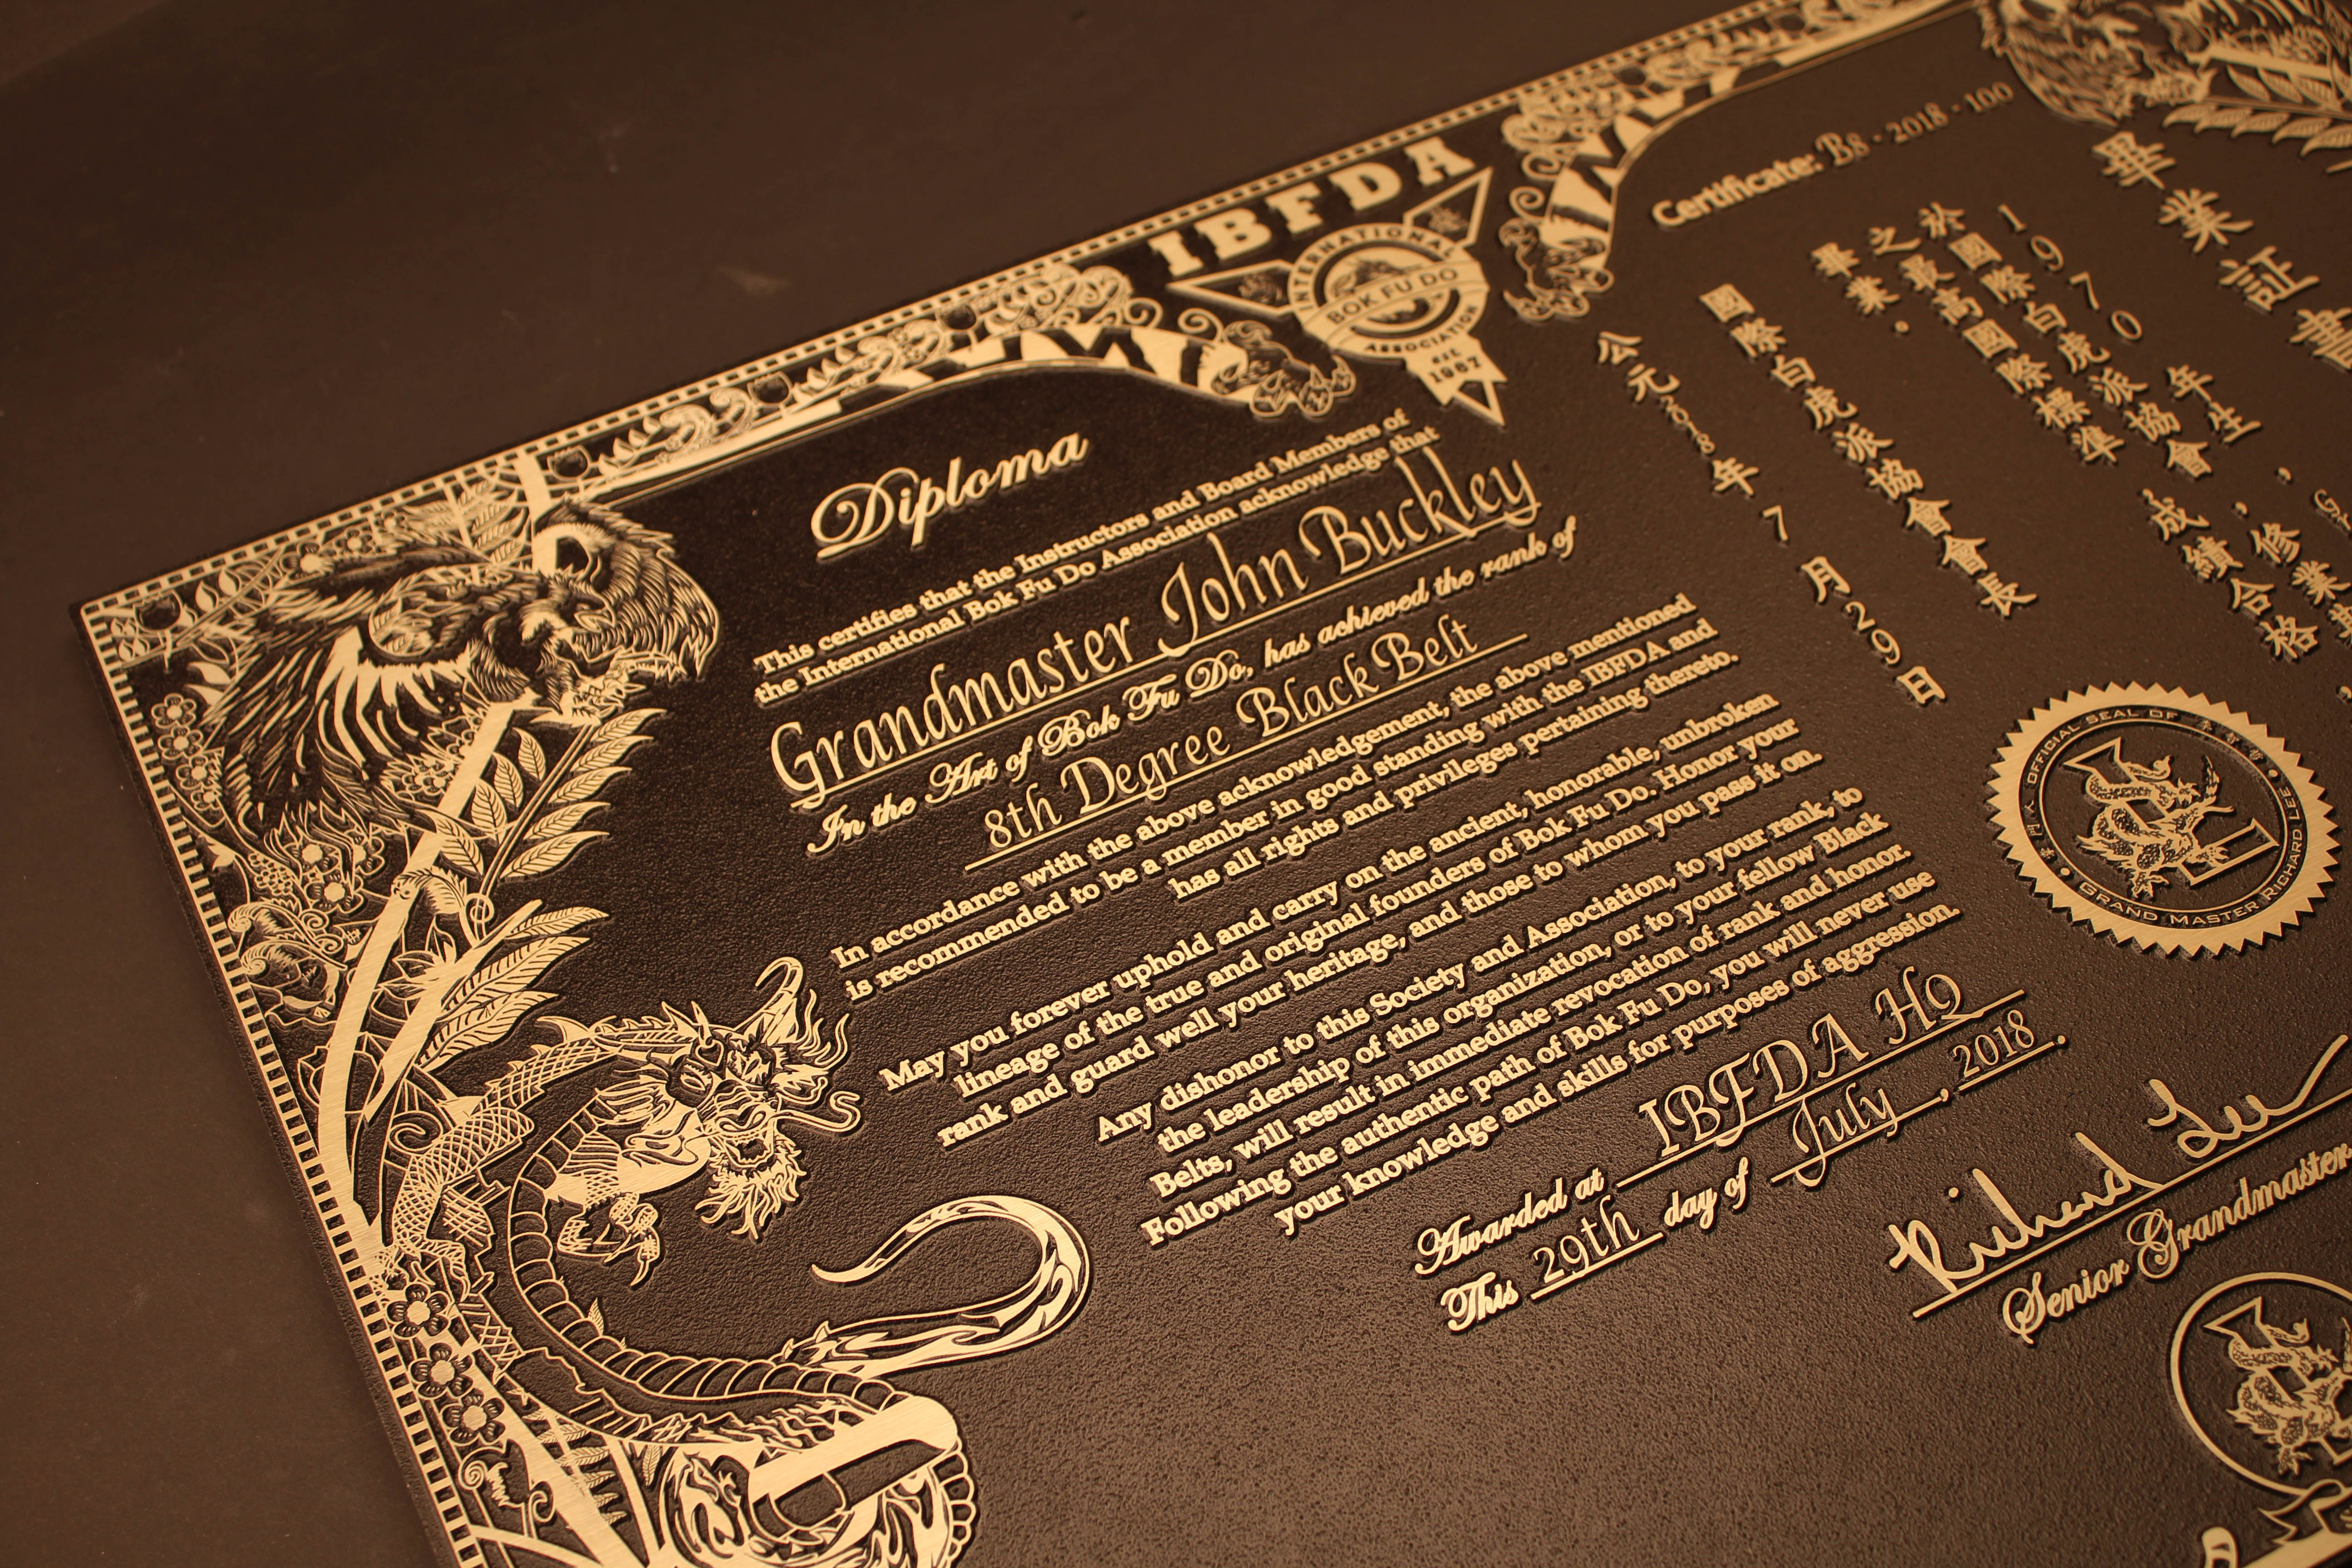 IBFDA
INTERNATIONAL
BOK FU DO
ASSOCIATION
EST.
1967
Diploma
This certifies that the Instructors and Board Members of
the International Bok Fu Do Association acknowledge that
Grandmaster John Buckley
In the Art of Bok Fu Do, has achieved the rank of
8th Degree Black Belt
In accordance with the above acknowledgement, the above mentioned
is recommended to be a member in good standing with the IBFDA and
has all rights and privileges pertaining thereto.
May you forever uphold and carry on the ancient, honorable, unbroken
lineage of the true and original founders of Bok Fu Do. Honor your
rank and guard well your heritage, and those to whom you pass it on.
Any dishonor to this Society and Association, to your rank, to
the leadership of this organization, or to your fellow Black
Belts, will result in immediate revocation of rank and honor.
Following the authentic path of Bok Fu Do, you will never use
your knowledge and skills for purposes of aggression.
Awarded at IBFDA HQ
This 29th day of July, 2018.
Richard Lee
Senior Grandmaster
Certificate: B8 · 2018 · 100
畢業証書
1970年生，修業
於國際白虎派協會，成績合格
之最高國際標準
畢業。
國際白虎派協會會長
公元2018年7月29日
OFFICIAL SEAL OF
GRAND MASTER RICHARD LEE